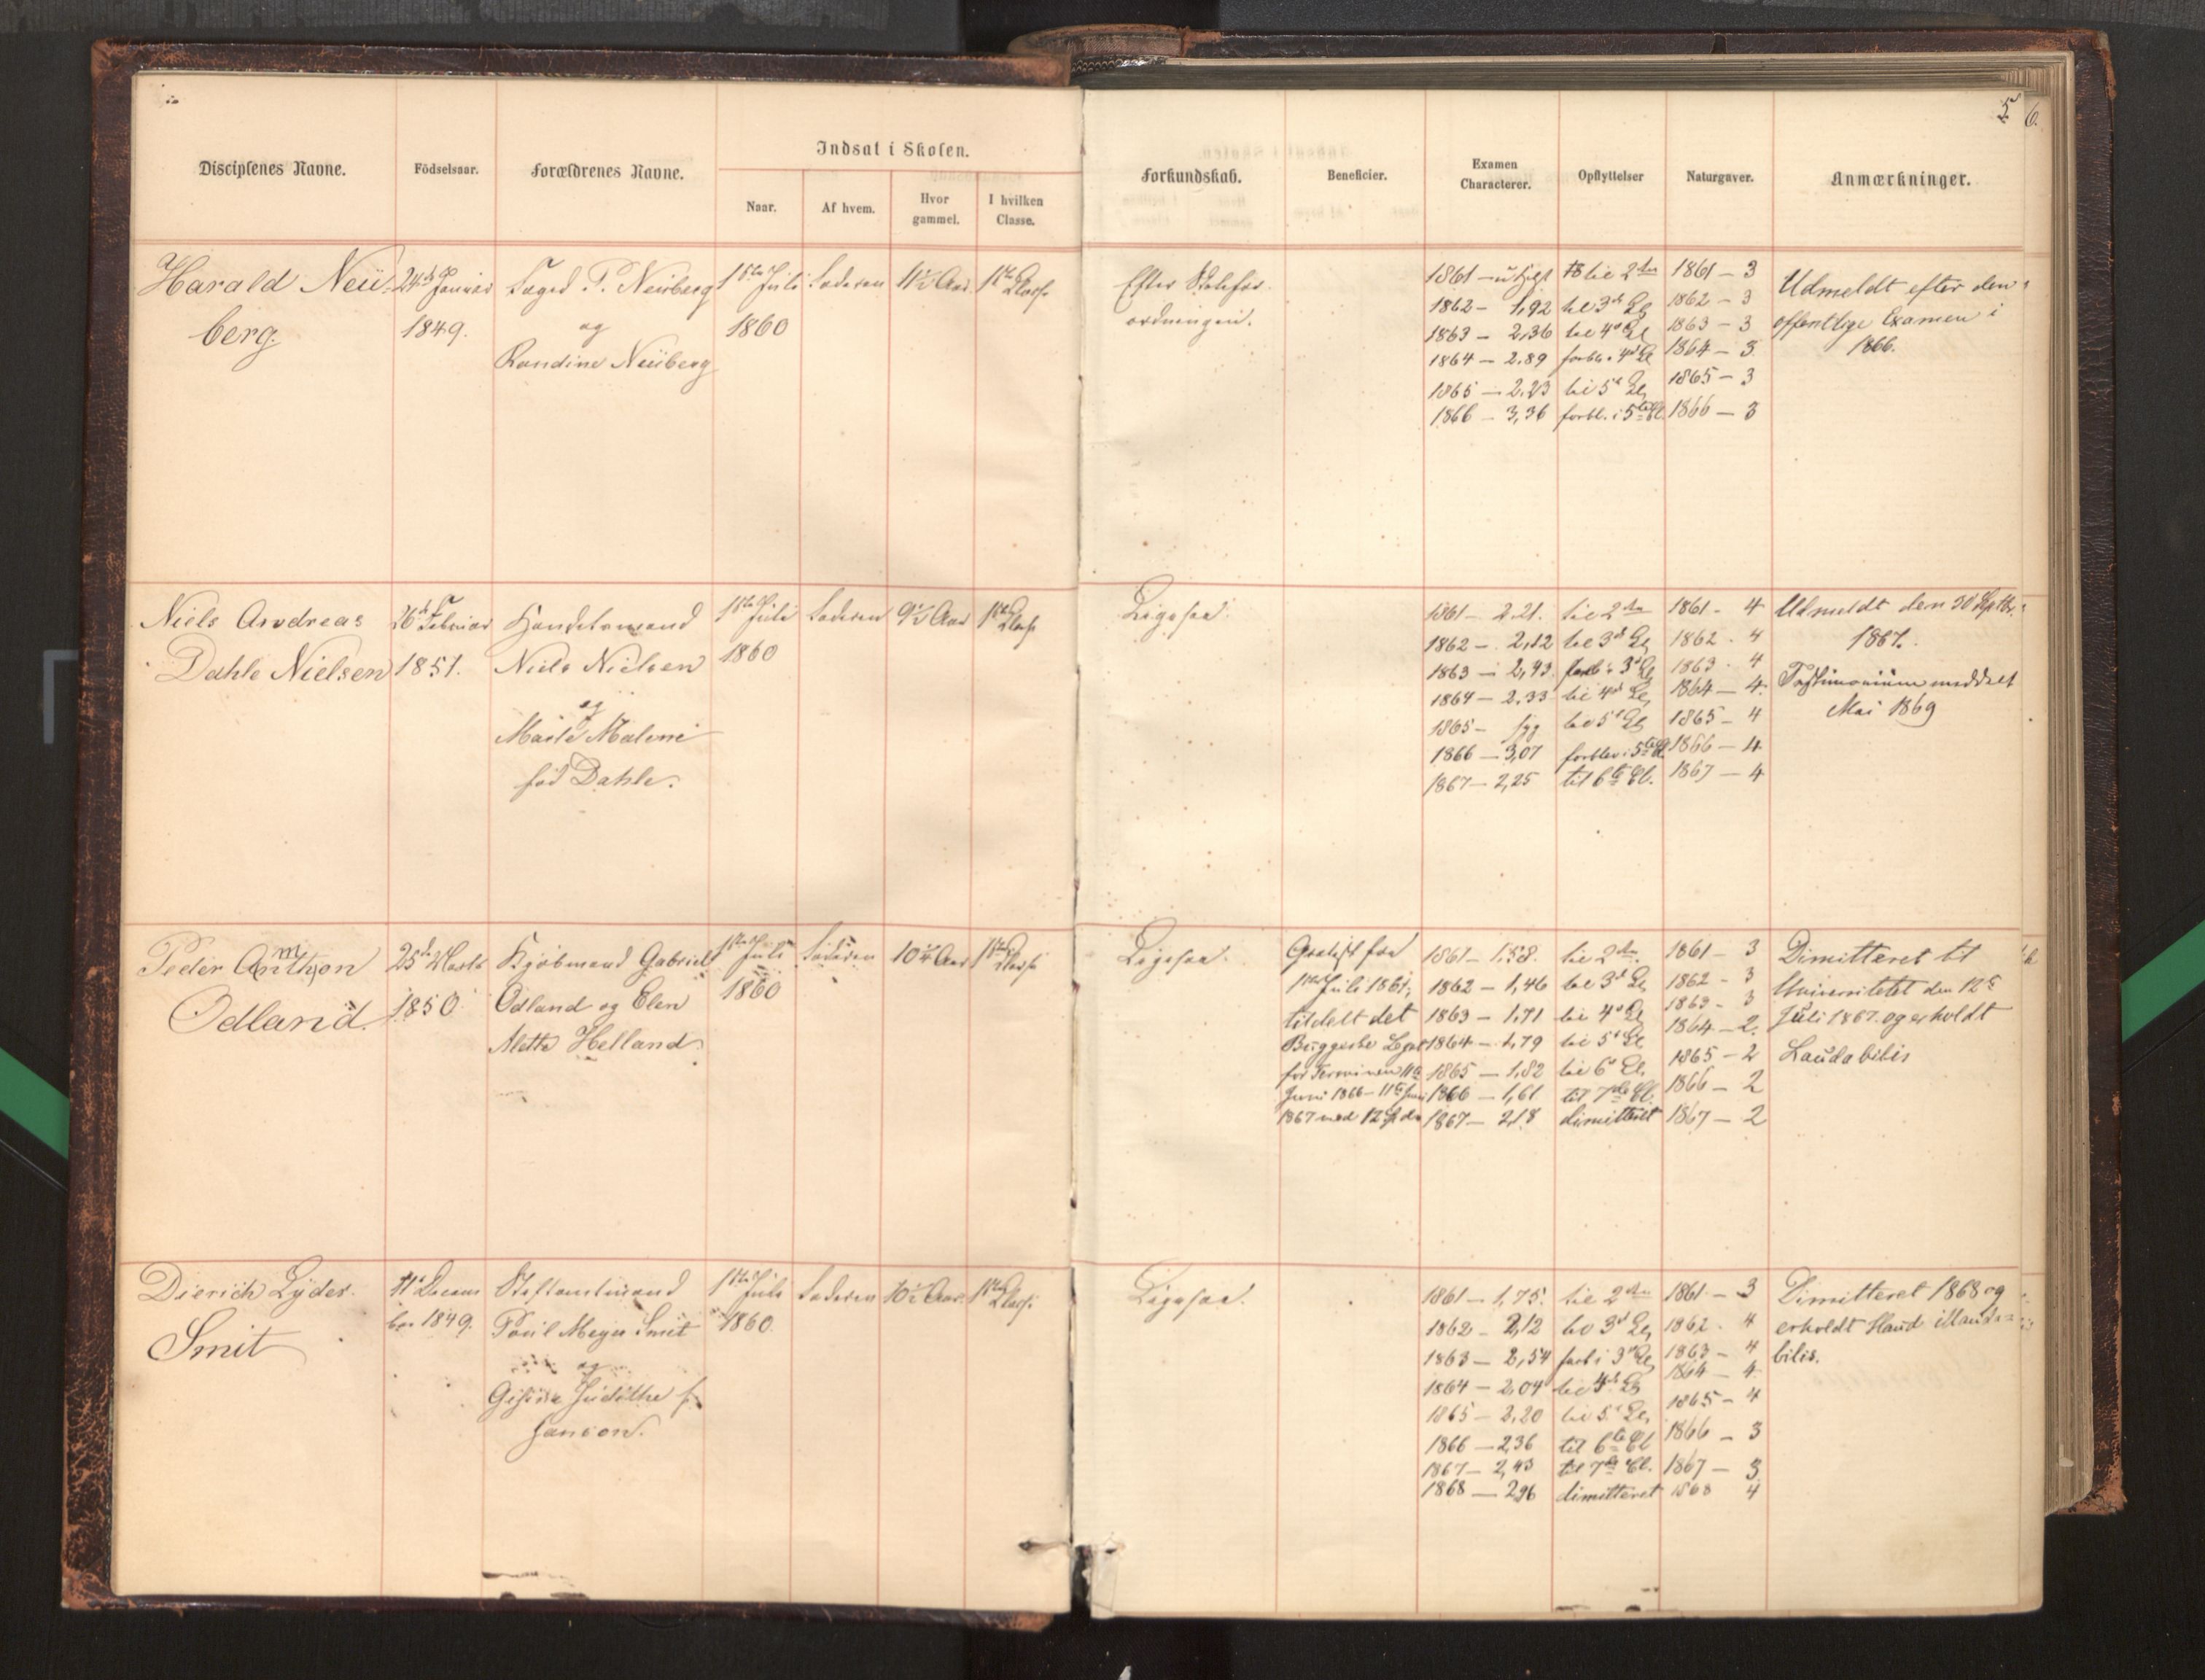 5 6.
Disciplenes Navne. Födselsaar. Forældrenes Navne. Indsat i Skolen. Forkundskab. Beneficier. Examen Characterer. Opflyttelser Naturgaver. Anmærkninger.
Naar. Af hvem. Hvor gammel. I hvilken Classe.
Harald Neü-
berg.
24de Januar
1849.
Foged P. Neüberg
og
Randine Neüberg
1ste Juli
1860
Faderen
11½ Aar
1ste Classe
Efter Skolefor-
ordningen.
1861 –
1862 – 1,92
1863 – 2,36
1864 – 2.89
1865 – 2.23
1866 – 3,36
til 2den
til 3d Cl
til 4d Cl
forbl. i 4d Cl
til 5t Cl
forbl. i 5te Cl.
1861 – 3
1862 – 3
1863 – 3
1864 – 3
1865 – 3
1866 – 3
Udmeldt efter den
offentlige Examen i
1866.
Niels Andreas
Dahle Nielsen
26de Februar
1851.
Handelsmand
Niels Nielsen
og
Malene
fød Dahle.
1ste Juli
1860
Faderen
9½ Aar
1ste Classe
Ligesaa.
1861 – 2.21.
1862 – 2,12
1863 – 2,43
1864 – 2.33
1865 – syg
1866 – 3,07
1867 – 2,25
til 2den
til 3d Cl
forb. i 3d Cl
til 4d Cl
til 5t Cl
forblev i 5te Cl.
til 6te Cl.
1861 – 4
1862 . 4
1863 . 4
1864 – 4.
1865 – 4
1866 – 4
1867 – 4
Udmeldt den 30 Septbr.
1867.
Testimonium meddelt
Mai 1869
Peder Anthon
m
Odland.
25de Marts
1850
Kjøbmand Gabriel
Odland og Elen
Aletta Helland
1ste Juli
1860
Faderen
10¼ Aar
1ste Classe
Ligesaa.
Gratist fra
1ste Juli 1861;
tildelt det
Buggeske Legat
for Terminen 11te
Juni 1866 – 11te Juni
1867 med 12 Spdr
1861 – 1,58.
1862 – 1,46
1863 – 1,71
1864 – 1,79
1865 – 1,82
1866 – 1,61
1867 – 2,18
til 2den.
til 3d Cl
til 4d Cl
til 5t Cl
til 6t Cl.
til 7de Cl.
dimitteret
1861 – 3
1862 – 3
1863 – 3
1864 – 2.
1865 – 2
1866 – 2
1867 – 2
Dimitteret til
Universitetet den 12te
Juli 1867. og erholdt
Laudabilis
Dierich Lyder
Smit
11te Decem
ber 1849.
Stiftamtmand
Poul Meyer Smit
og
Gesine Judithe f.
Janson.
1ste Juli
1860.
Faderen
10½ Aar.
1ste Classe
Ligesaa.
1861 – 1,75.
1862 – 2,12
1863 – 2,54
1864 – 2,04
1865 – 2,20
1866 – 2,36
1867 – 2,43
1868 – 2,96
til 2den
til 3d Cl,
forb i 3d Cl
til 4de Cl
til 5t Cl,
til 6te Cl
til 7de Cl.
dimitteret
1861 – 3
1862 . 4
1863 – 4
1864 – 4
1865 – 4
1866 – 3
1867 – 3
1868 4
Dimitteret 1868 og
erholdt Haud illauda-
bilis.